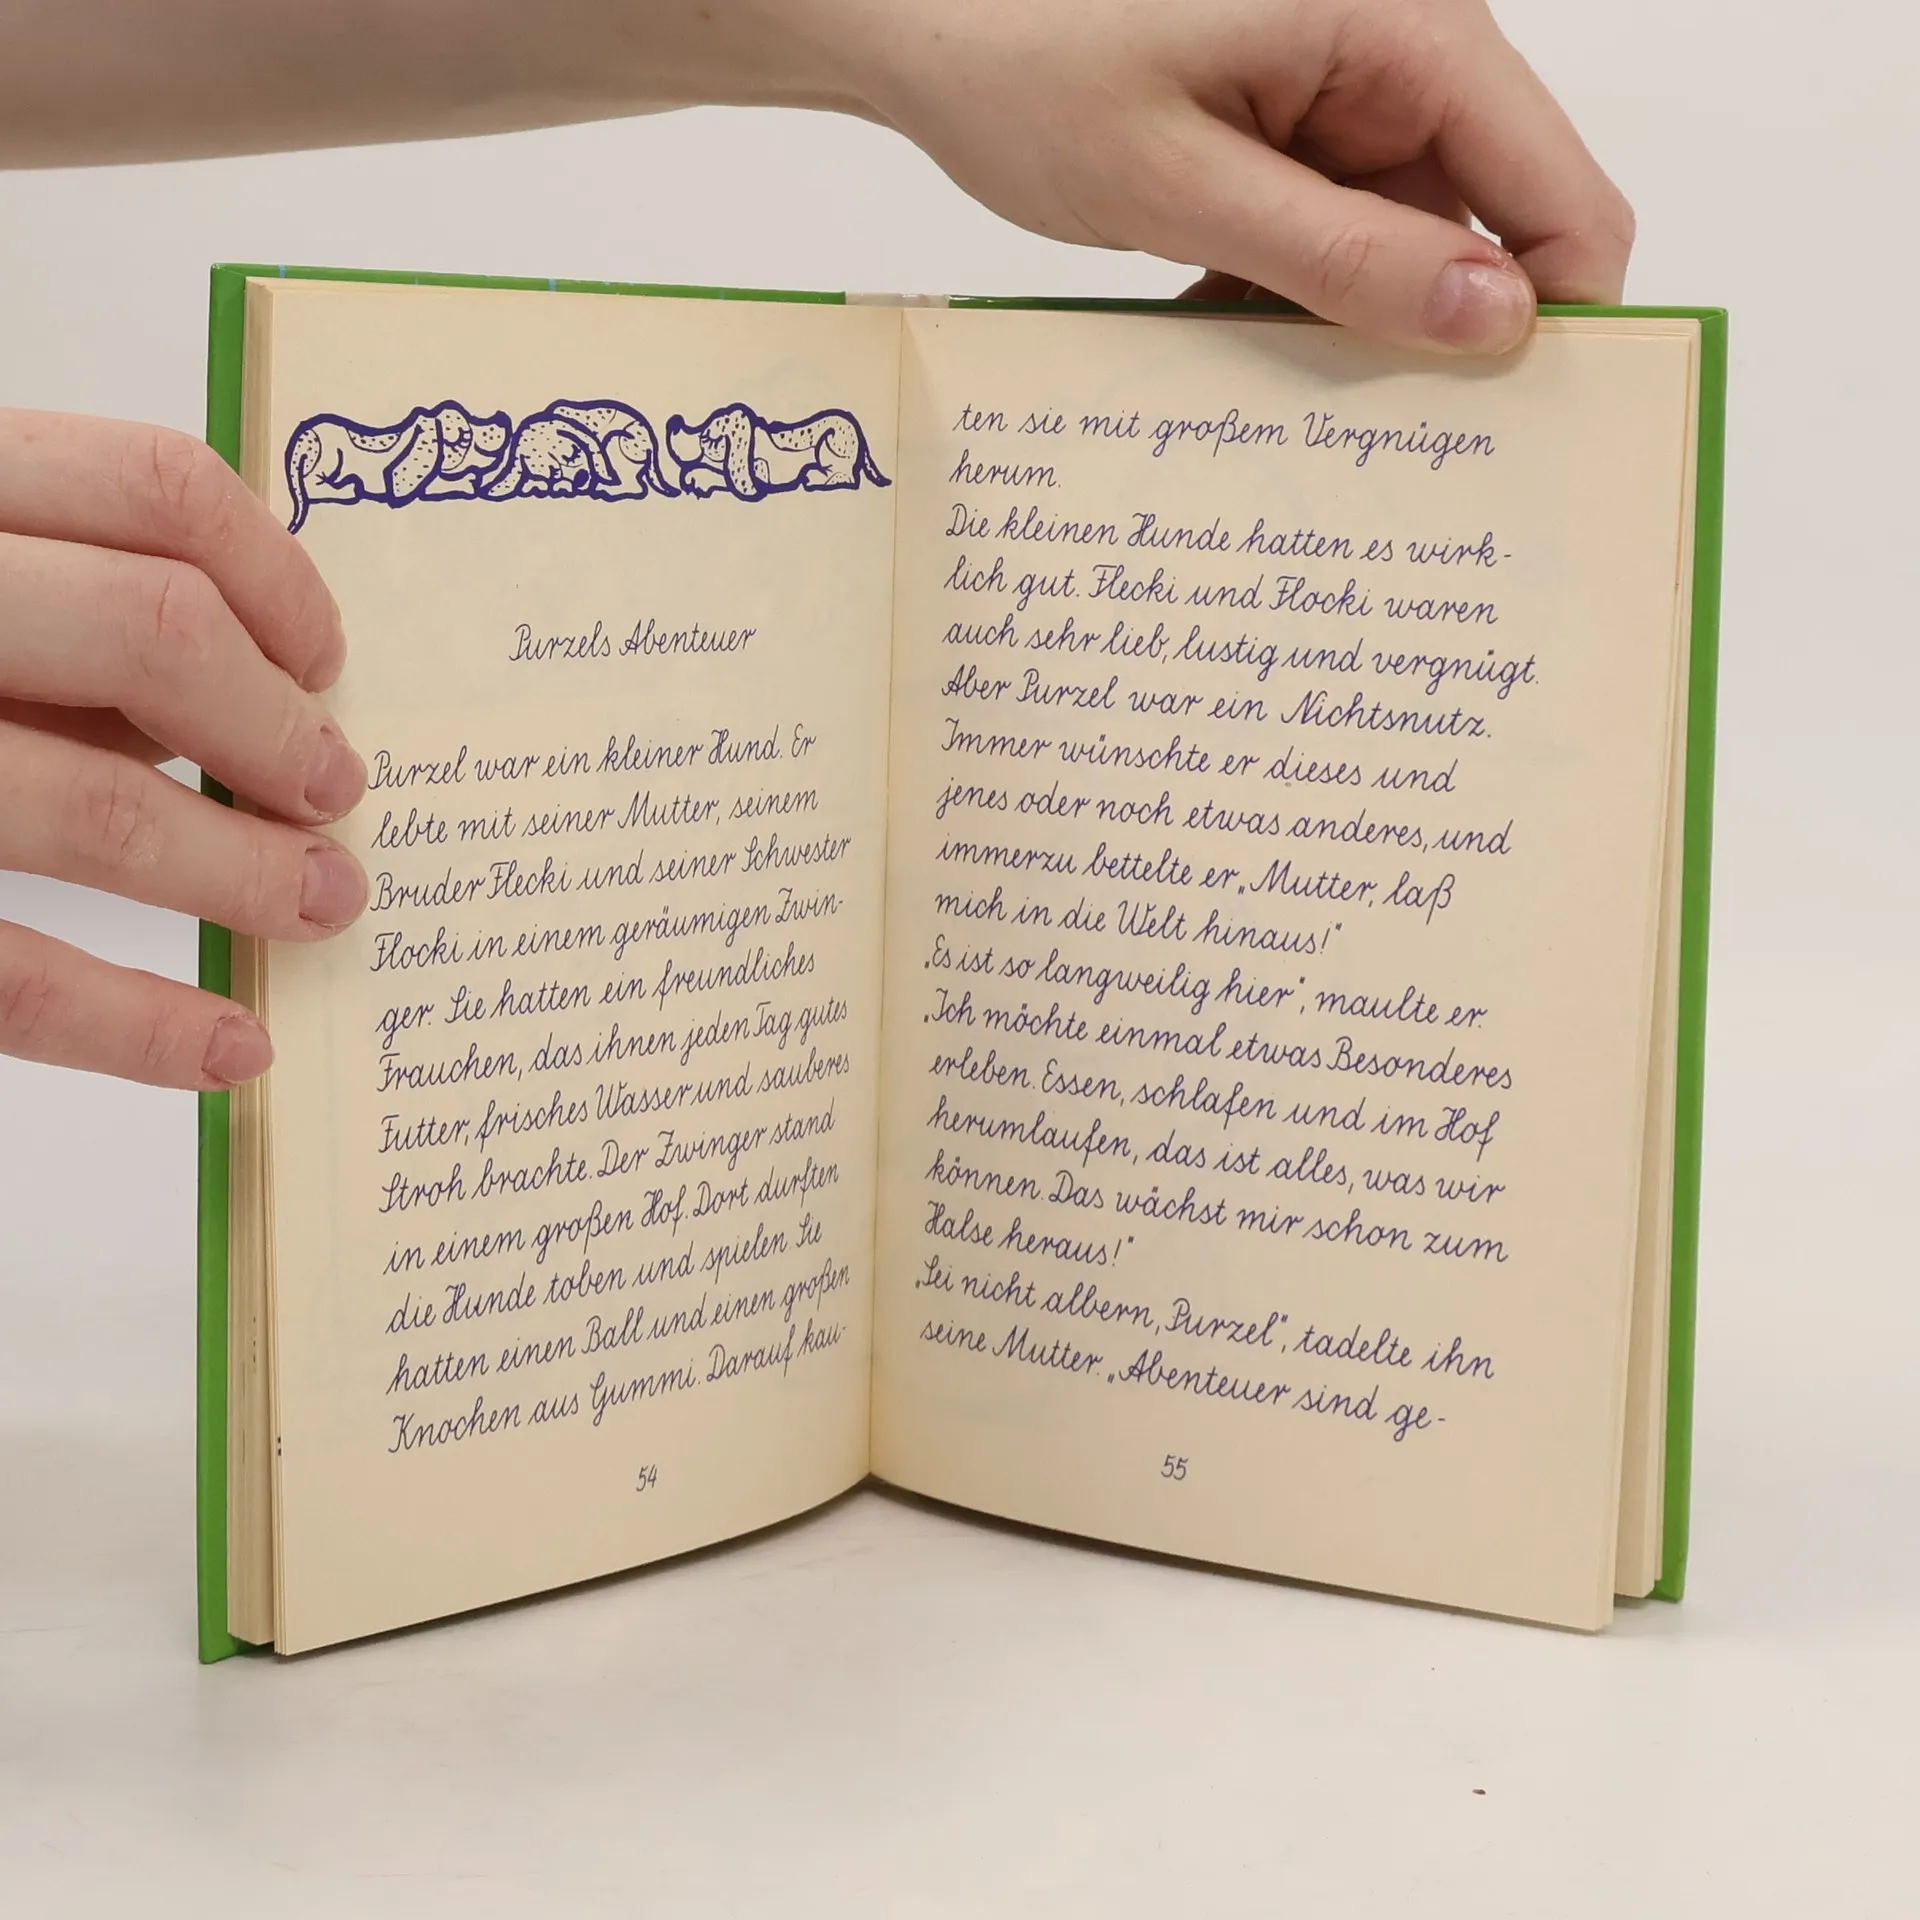 Purzels Abenteuer
Purzel war ein kleiner Hund. Er
lebte mit seiner Mutter, seinem
Bruder Flecki und seiner Schwester
Flocki in einem geräumigen Zwin-
ger. Sie hatten ein freundliches
Frauchen, das ihnen jeden Tag gutes
Futter, frisches Wasser und sauberes
Stroh brachte. Der Zwinger stand
in einem großen Hof. Dort durften
die Hunde toben und spielen. Sie
hatten einen Ball und einen großen
Knochen aus Gummi. Darauf kau-
54
ten sie mit großem Vergnügen
herum.
Die kleinen Hunde hatten es wirk-
lich gut. Flecki und Flocki waren
auch sehr lieb, lustig und vergnügt.
Aber Purzel war ein Nichtsnutz.
Immer wünschte er dieses und
jenes oder noch etwas anderes, und
immerzu bettelte er „Mutter, laß
mich in die Welt hinaus!“
„Es ist so langweilig hier“, maulte er.
„Ich möchte einmal etwas Besonderes
erleben. Essen, schlafen und im Hof
herumlaufen, das ist alles, was wir
können. Das wächst mir schon zum
Halse heraus!“
„Sei nicht albern, Purzel“, tadelte ihn
seine Mutter. „Abenteuer sind ge-
55